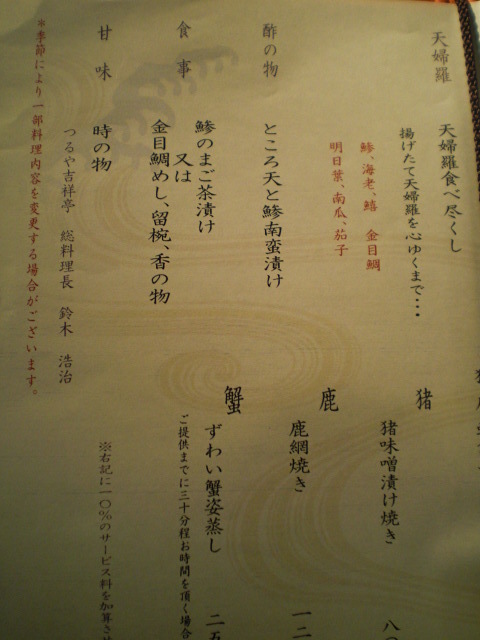 天婦羅
天婦羅食べ尽くし
揚げたて天婦羅を心ゆくまで・・・
鯵、海老、鱚　金目鯛
明日葉、南瓜、茄子
酢の物
ところ天と鯵南蛮漬け
食事
鯵のまご茶漬け
又は
金目鯛めし、留椀、香の物
甘味
時の物
つるや吉祥亭　総料理長　鈴木　浩治
*季節により一部料理内容を変更する場合がございます。
猪
猪味噌漬け焼き
八
鹿
鹿網焼き
一二
蟹
ずわい蟹姿蒸し
二五
ご提供までに三十分程お時間を頂く場合
※右記に一〇%のサービス料を加算さ